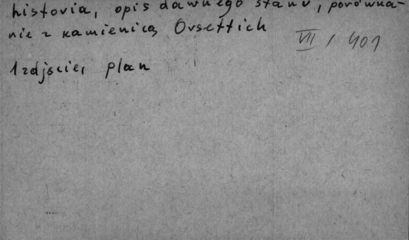 historia, opis dawnego stanu, porówna-
nie z kamienicą Orsettich
VII / 401
1 zdjęcie, plan